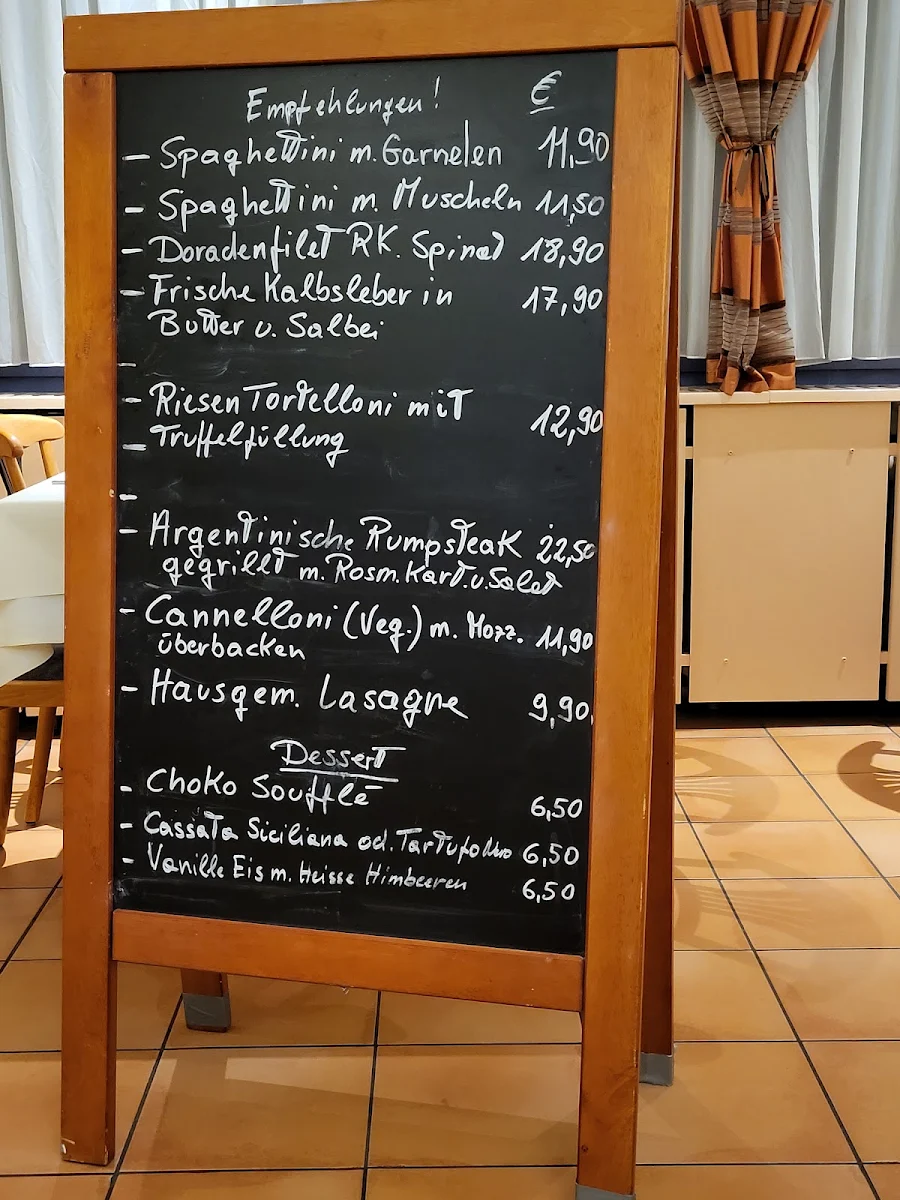 Empfehlungen! €
- Spaghettini m. Garnelen 11,90
- Spaghettini m. Muscheln 11,50
- Doradenfilet RK. Spinat 18,90
- Frische Kalbsleber in 17,90
Butter u. Salbei
-
- Riesen Tortelloni mit 12,90
- Trüffelfüllung
-
- Argentinische Rumpsteak 22,50
gegrillt m. Rosm. Kart. u. Salat
- Cannelloni (Veg.) m. Mozz. 11,90
überbacken
- Hausgem. Lasagne 9,90
Dessert
- Choko Soufflé 6,50
- Cassata Siciliana od. Tartufo 6,50
- Vanille Eis m. Heisse Himbeeren 6,50